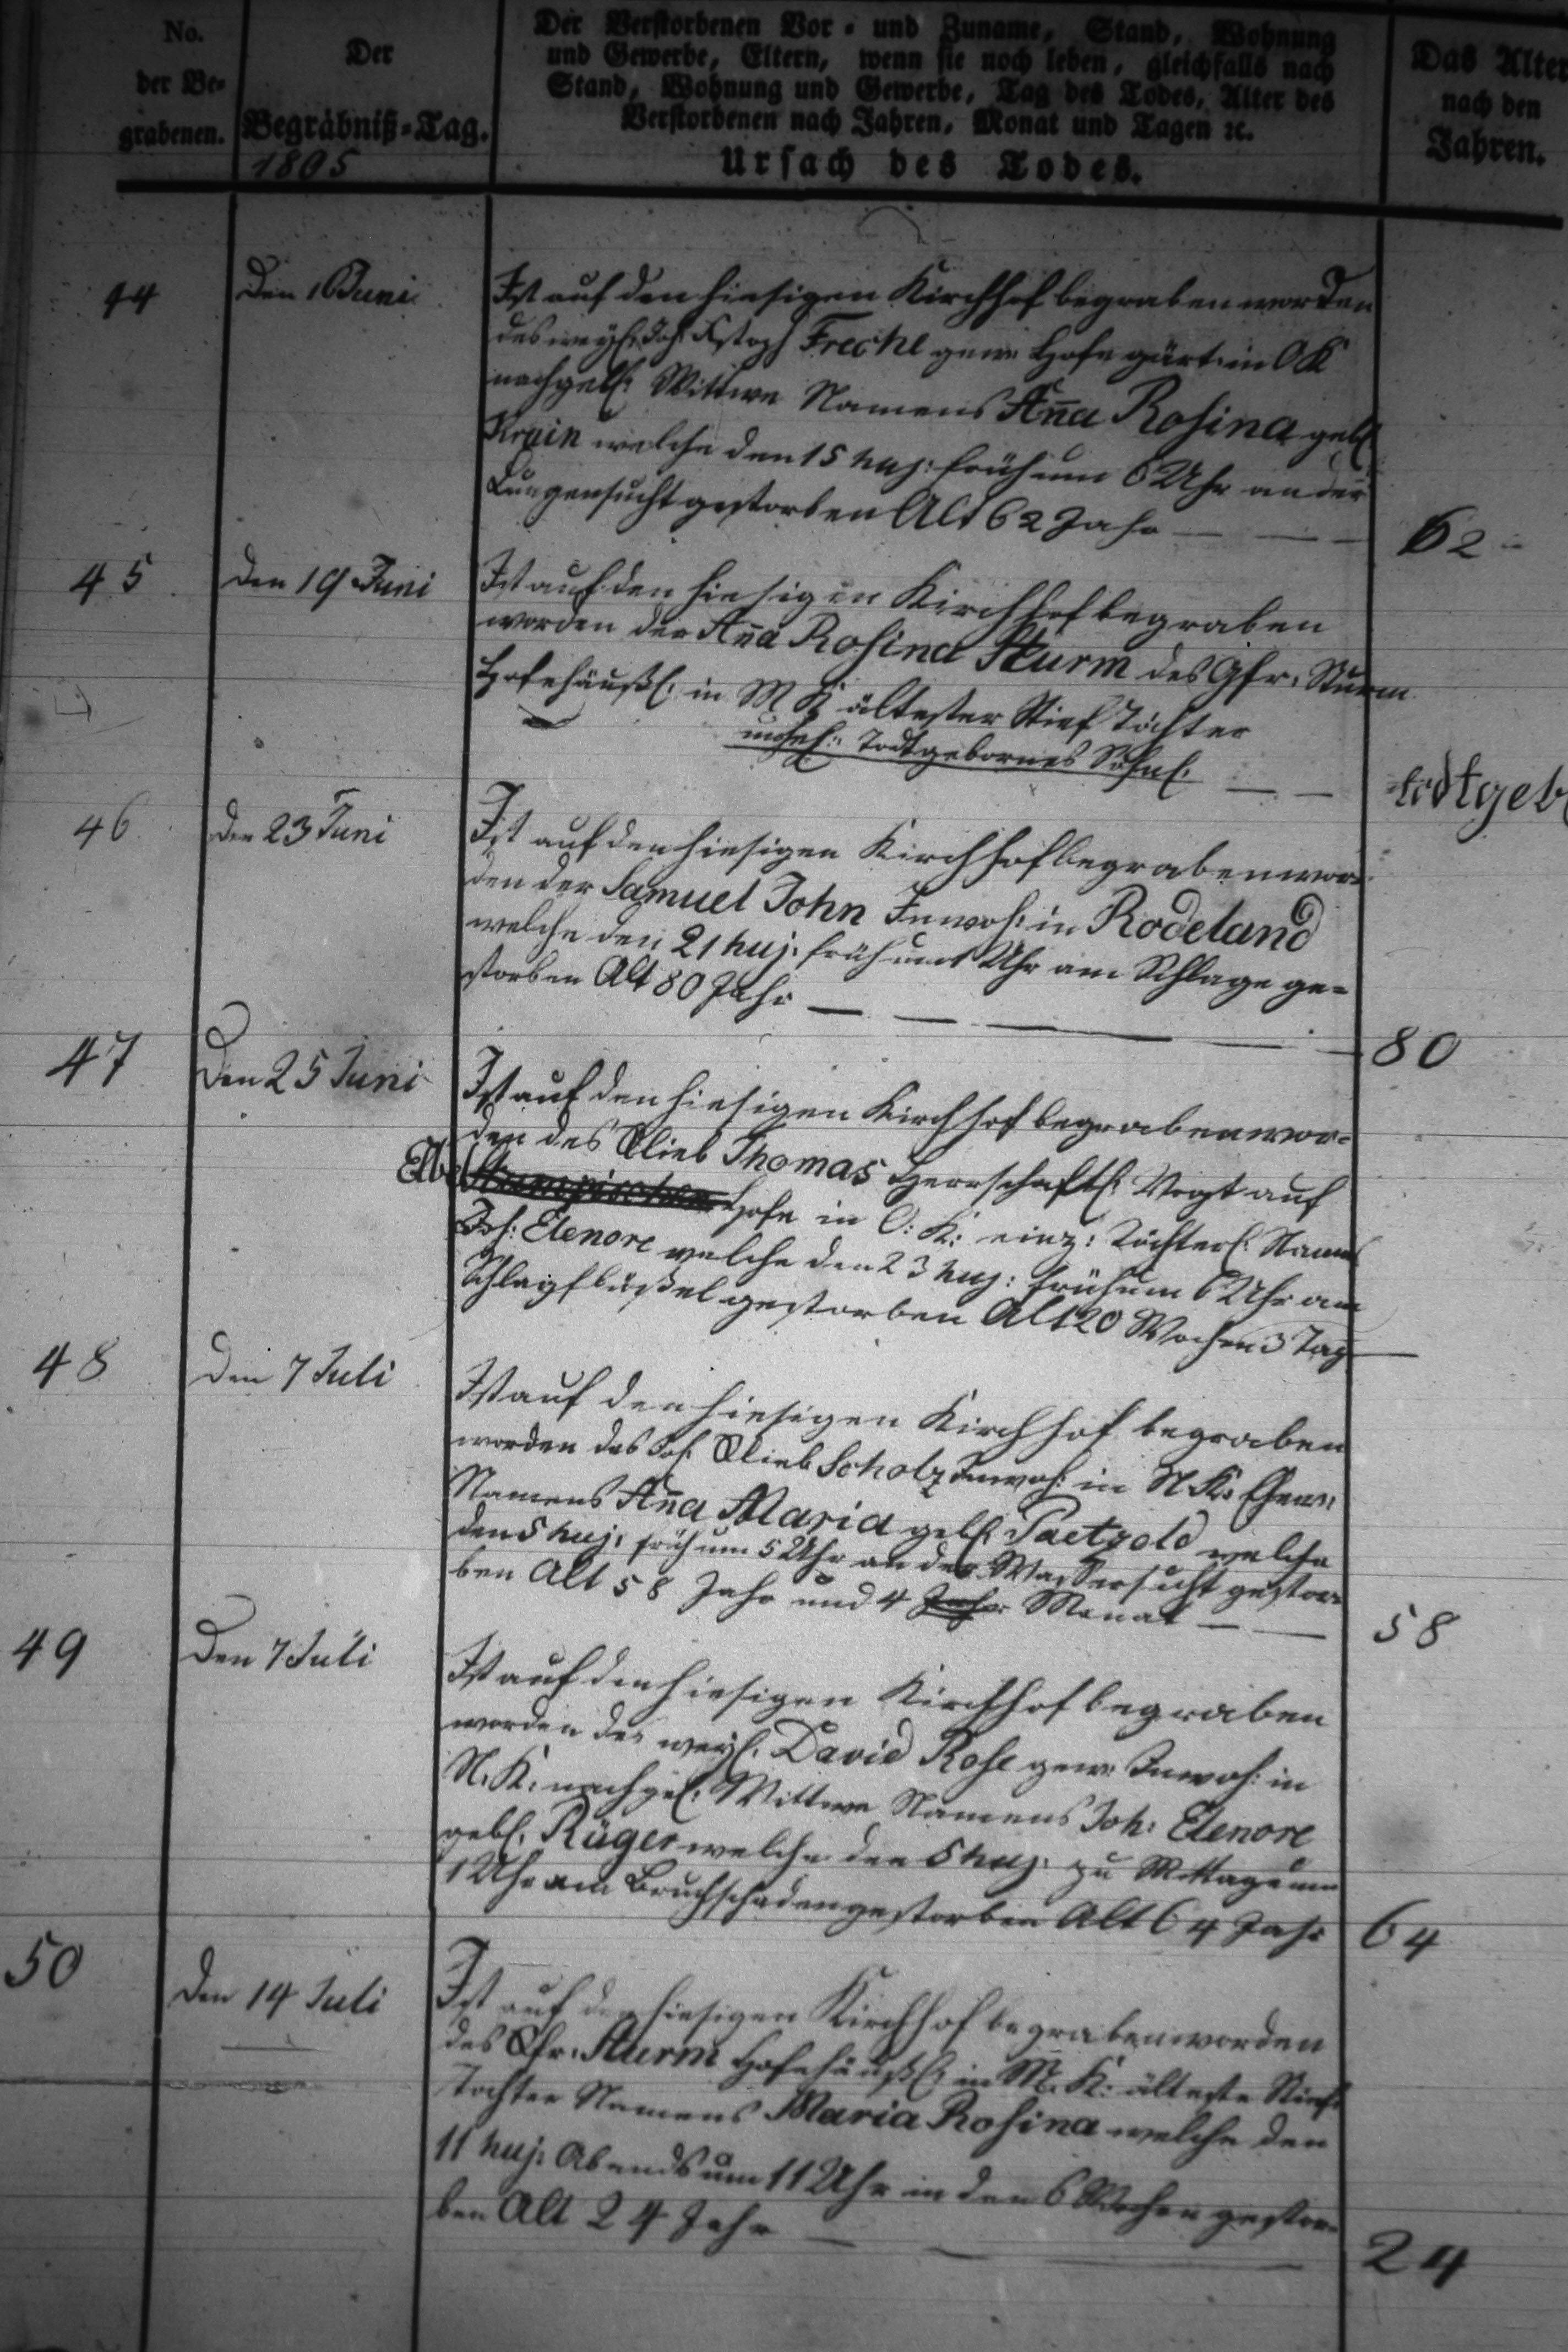 No.
der Be-
grabenen.
Der
Begräbniß-Tag.
1805
Der Verstorbenen Vor- und Zuname, Stand, Wohnung
und Gewerbe, Eltern, wenn sie noch leben, gleichfalls nach
Stand, Wohnung und Gewerbe, Tag des Todes, Alter des
Verstorbenen nach Jahren, Monat und Tagen ꝛc.
Ursach des Todes.
Das Alter
nach den
Jahren.
44
Den Juni
Ist auf den hiesigen Kirchhof begraben worden
des weyl: Joh: Freche gew: Hofegärt: in OK
nachgel: Wittwe Namens Aña Rosina geb:
welche den 15 huj: früh um 6 Uhr an der
Lungensucht gestorben Alt 62 Jahr — — —
62
45
Den 19 Juni
Ist auf den hiesigen Kirchhof begraben
worden der Aña Rosina Sturm des Gfr: Sturm
Hofehäußl: in M K ältester Stief Tochter
unehel: Todtgebornes Söhnl: — —
todtgeb
46
Den 23 Juni
Ist auf den hiesigen Kirchhof begraben wor-
den der Samuel John Inwoh: in Rodeland
welche den 21 huj: früh um 1 Uhr am Schlage ge-
storben Alt 80 Jahr — — — — —
80
47
Den 25 Juni
Ist auf den hiesigen Kirchhof begraben wor-
den des Glieb Thomas Herrschaftl: Vogt auf
Hofe in O: K: einz: Töchterl: Namens
Joh: Elenore welche den 23 huj: früh um 6 Uhr am
Schlagflüßel gestorben Alt 20 Wochen 3 Tag —
48
Den 7 Juli
Ist auf den hiesigen Kirchhof begraben
worden des Joh: Glieb Scholz Inwoh: in N.K. Ehew:
Namens Aña Maria geb: Paetzold welche
den 5 huj: früh um 5 Uhr an der Wassersucht gestor-
ben Alt 58 Jahr und 4 Jahr Monat — —
58
49
Den 7 Juli
Ist auf den hiesigen Kirchhof begraben
worden des weyl: David Rose gew: Inwoh: in
N. K. nachgel: Wittwe Namens Joh: Elenore
geb: Rüger welche den 5 huj: zu Mittage um
1 Uhr am Bruchschaden gestorben Alt 64 Jahr
64
50
Den 14 Juli
Ist auf den hiesigen Kirchhof begraben worden
des Gfr: Sturm Hofehäußl: in M. K: älteste Stief
Tochter Namens Maria Rosina welche den
11 huj: Abends um 11 Uhr in den 6 Wochen gestor-
ben Alt 24 Jahr — — — —
24